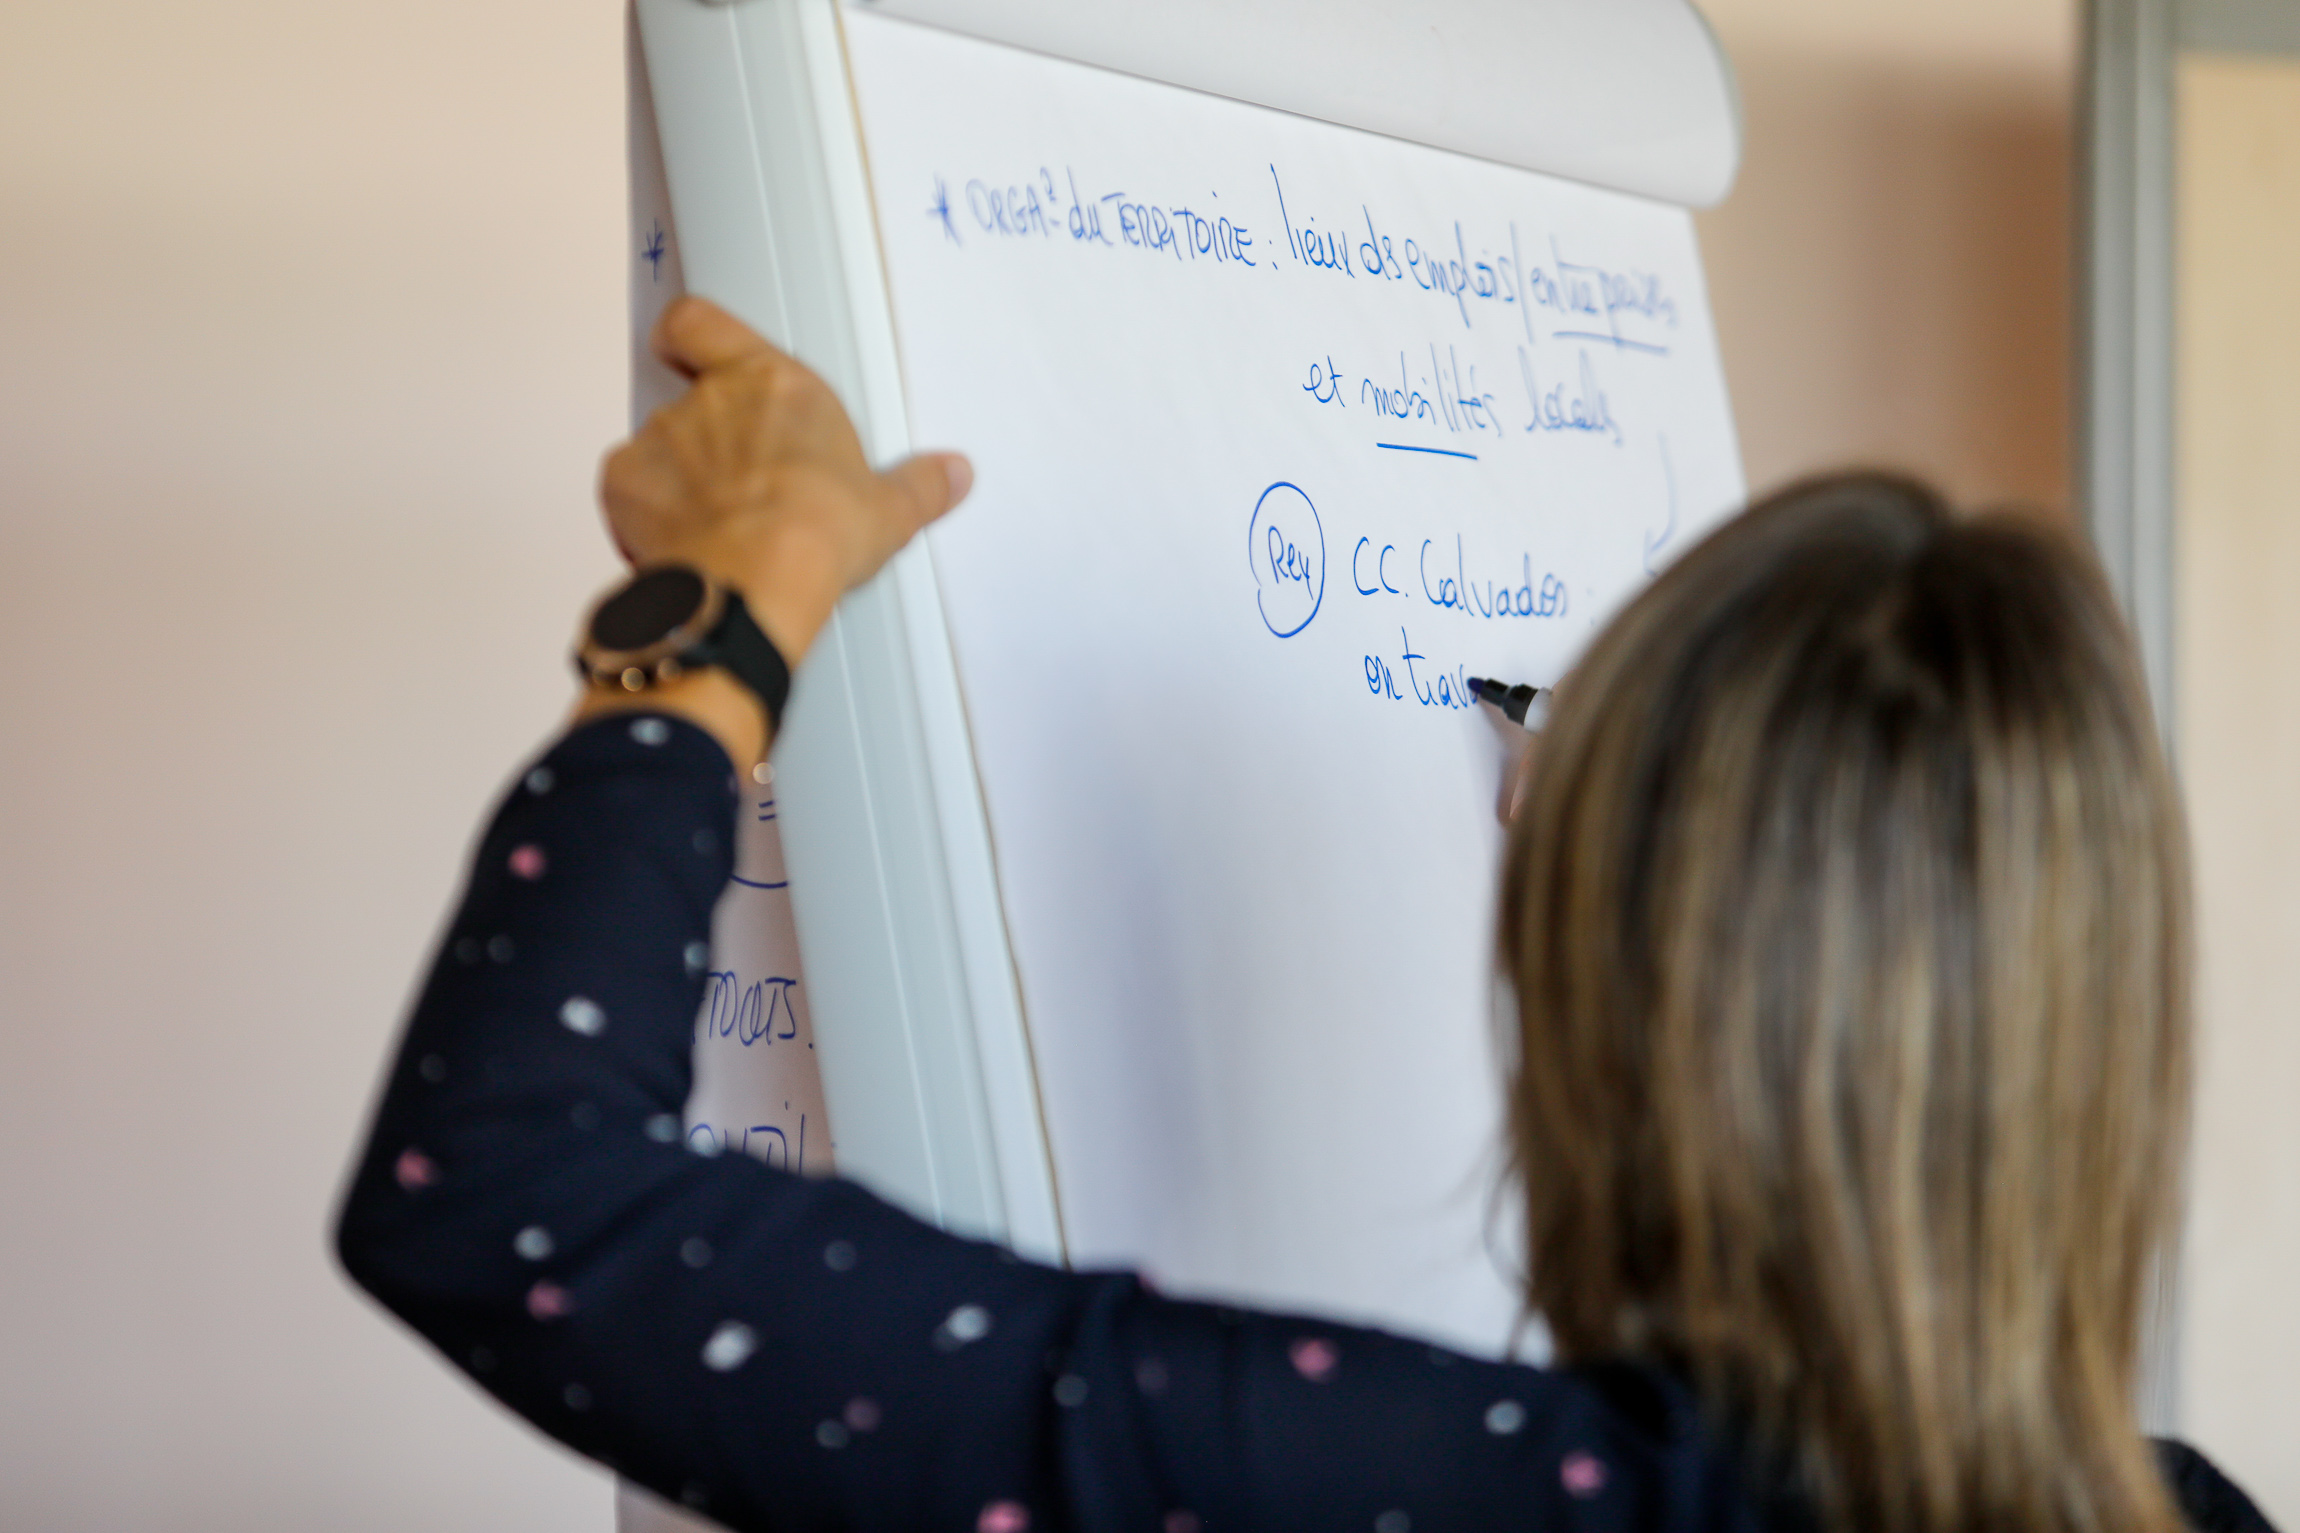 * ORGA° du TERRITOIRE : lieux ds emplois/entreprises
et mobilités locales
Rex CC. Calvados :
on trava
*
=
OUTIL